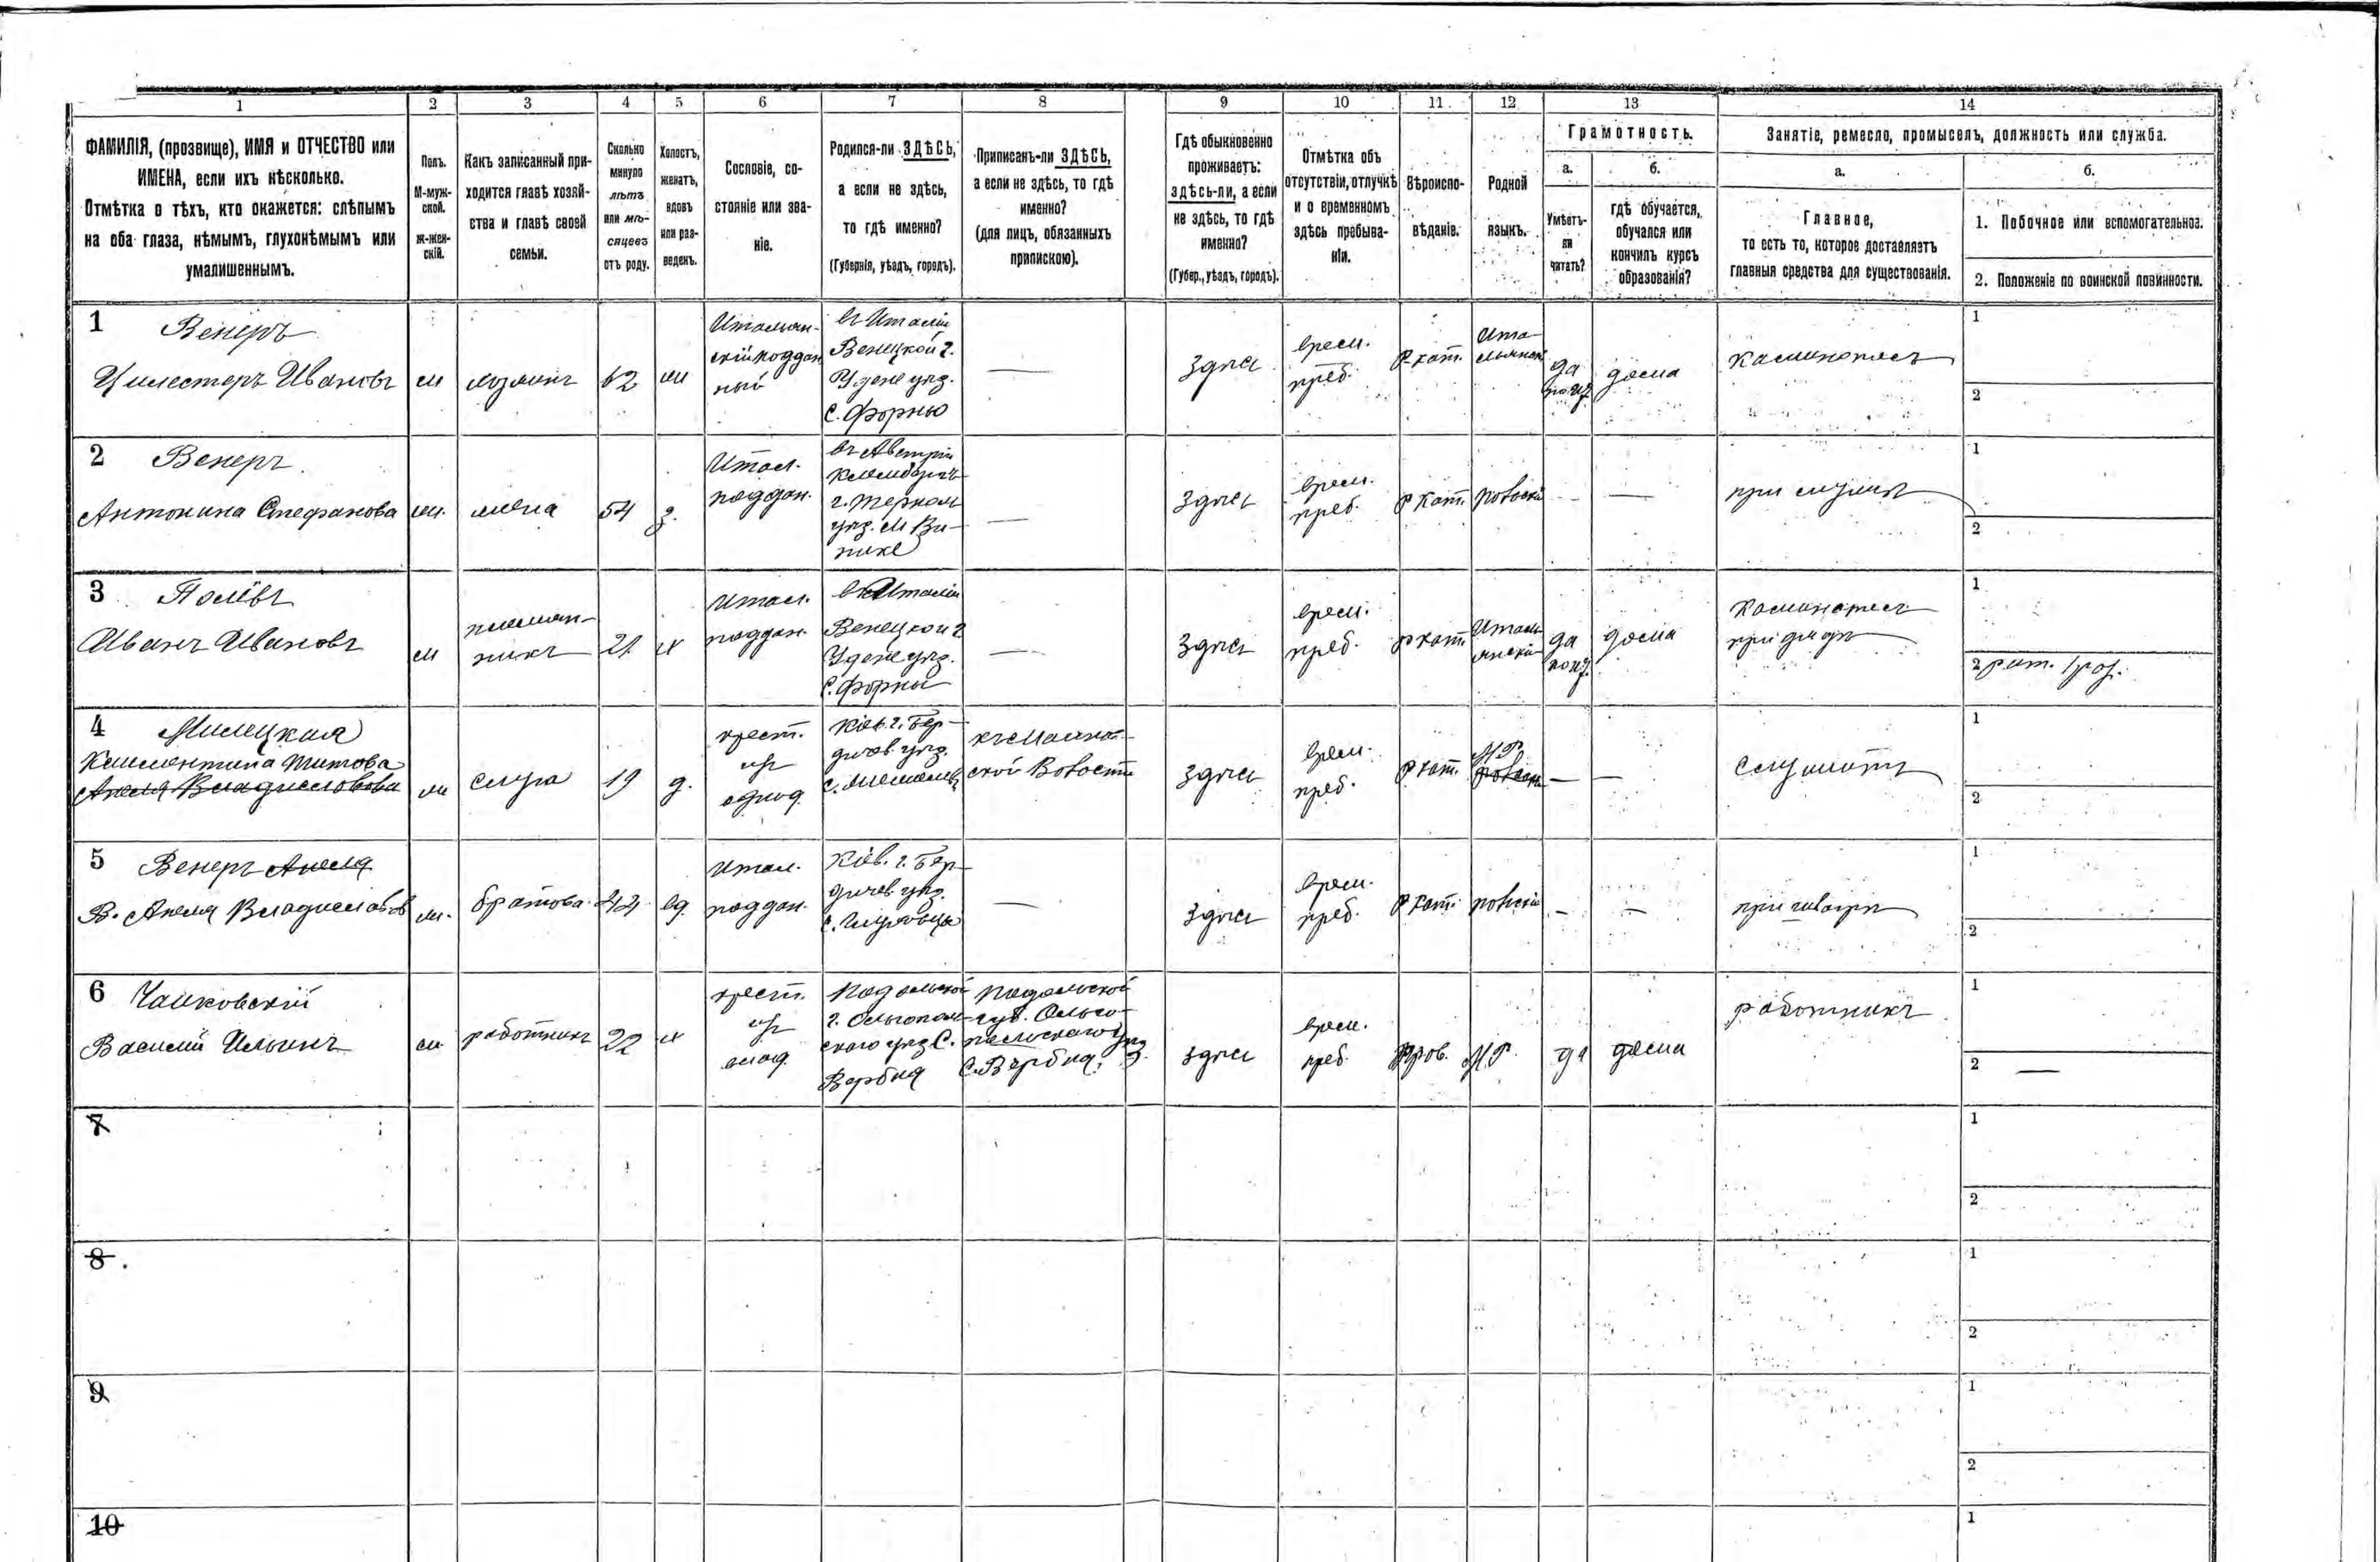 1 2 3 4 5 6 7 8 9 10 11 12 13 14
ФАМИЛІЯ, (прозвище), ИМЯ и ОТЧЕСТВО или
ИМЕНА, если ихъ нѣсколько.
Отмѣтка о тѣхъ, кто окажется: слѣпымъ
на оба глаза, нѣмымъ, глухонѣмымъ или
умалишеннымъ.
Полъ.
М-муж-
ской.
ж-жен-
скій.
Какъ записанный при-
ходится главѣ хозяй-
ства и главѣ своей
семьи.
Сколько
минуло
лѣтъ
или мѣ-
сяцевъ
отъ роду.
Холостъ,
женатъ,
вдовъ
или раз-
веденъ.
Сословіе, со-
стояніе или зва-
ніе.
Родился-ли ЗДѢСЬ,
а если не здѣсь,
то гдѣ именно?
(Губернія, уѣздъ, городъ).
Приписанъ-ли ЗДѢСЬ,
а если не здѣсь, то гдѣ
именно?
(для лицъ, обязанныхъ
припискою).
Гдѣ обыкновенно
проживаетъ:
здѣсь-ли, а если
не здѣсь, то гдѣ
именно?
(Губер., уѣздъ, городъ).
Отмѣтка объ
отсутствіи, отлучкѣ
и о временномъ
здѣсь пребыва-
ніи.
Вѣроиспо-
вѣданіе.
Родной
языкъ.
Грамотность.
а.
Умѣетъ-
ли
читать?
б.
гдѣ обучается,
обучался или
кончилъ курсъ
образованія?
Занятіе, ремесло, промыселъ, должность или служба.
а.
Главное,
то есть то, которое доставляетъ
главныя средства для существованія.
б.
1. Побочное или вспомогательное.
2. Положеніе по воинской повинности.
1 Венеръ
Ивановъ
м
хозяинъ
62
Итальян-
скій поддан
ный
въ Италіи
Венецкой г.
Удене уѣз.
с. Форню
—
здѣсь
врем.
преб.
Р-кат.
Ита-
льянск
да
дома
каменотесъ
1
2
2 Венеръ
Антонина Стефанова
жена
54
з.
Итал.
поддан.
въ Австріи
уѣз.
—
здѣсь
врем.
преб.
Р Кат.
— —
при мужѣ
1
2
3
Иванъ Ивановъ
м
племян-
никъ
21
х
Итал.
поддан.
въ Италіи
Венецкой г
Удене уѣз.
с. Форны
—
здѣсь
врем.
преб.
р кат.
Италь
янскій
да
дома
Каменотесъ
при дядѣ
1
2 рат. 1 раз.
4 Милецкая
Климентина Титова
Анеля Владиславова
слуга
19
д.
крест.
изъ
однод.
Кіев. г. Бер-
дичев. уѣз.
ской волости
здѣсь
врем.
преб.
Р кат.
М.Р.
— —
служитъ
1
2
5 Венеръ Анеля
В. Анеля Владиславов
братова
44
вд.
Итал.
поддан.
Кіев. г. Бер-
дичев. уѣз.
—
здѣсь
врем.
преб.
Р кат.
— —
1
2
6 Чайковскій
Василій Ильинъ
м.
работникъ
22
х
крест.
изъ
Подольской
г. Ольгополь-
скаго уѣз с.
Вербка
Подольской
губ. Ольго-
польскаго уѣз
с. Вербка.
здѣсь
врем.
преб.
Пров.
М.Р.
да
дома
работникъ
1
2 —
7
1
2
8
1
2
9
1
2
10
1